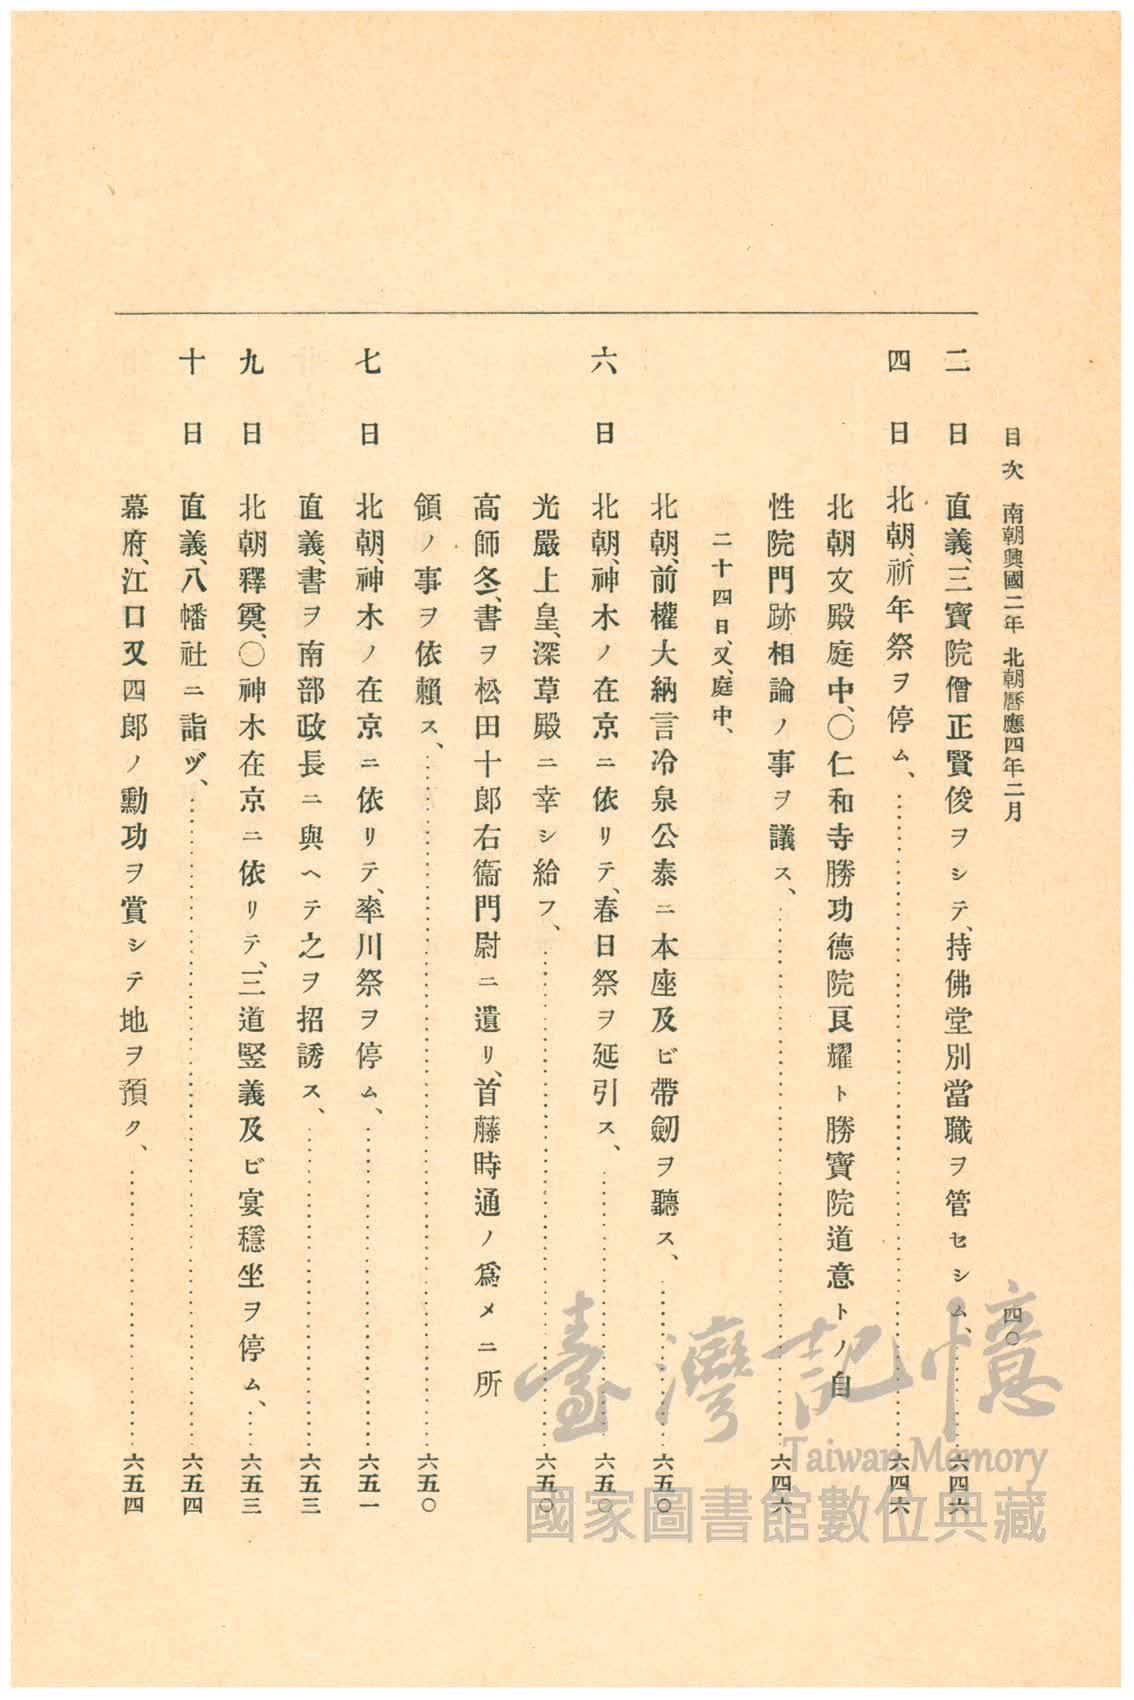 目次 南朝興國二年 北朝曆應四年二月 四〇
二日 直義、三寶院僧正賢俊ヲシテ、持佛堂別當職ヲ管セシム、…………六四六
四日 北朝、祈年祭ヲ停ム、…………六四六
北朝文殿庭中、〇仁和寺勝功德院良耀ト勝寶院道意トノ自
性院門跡相論ノ事ヲ議ス、…………六四六
二十四日、又、庭中、
北朝、前權大納言冷泉公泰ニ本座及ビ帶劒ヲ聽ス、…………六五〇
六日 北朝、神木ノ在京ニ依リテ、春日祭ヲ延引ス、…………六五〇
光嚴上皇、深草殿ニ幸シ給フ、…………六五〇
高師冬、書ヲ松田十郎右衞門尉ニ遺リ、首藤時通ノ爲メニ所
領ノ事ヲ依賴ス、…………六五〇
七日 北朝、神木ノ在京ニ依リテ、率川祭ヲ停ム、…………六五一
直義、書ヲ南部政長ニ與ヘテ之ヲ招誘ス、…………六五三
九日 北朝釋奠、〇神木在京ニ依リテ、三道竪義及ビ宴穩坐ヲ停ム、…………六五三
十日 直義、八幡社ニ詣ヅ、…………六五四
幕府、江口又四郎ノ勳功ヲ賞シテ地ヲ預ク、…………六五四
臺灣記憶
Taiwan Memory
國家圖書館數位典藏